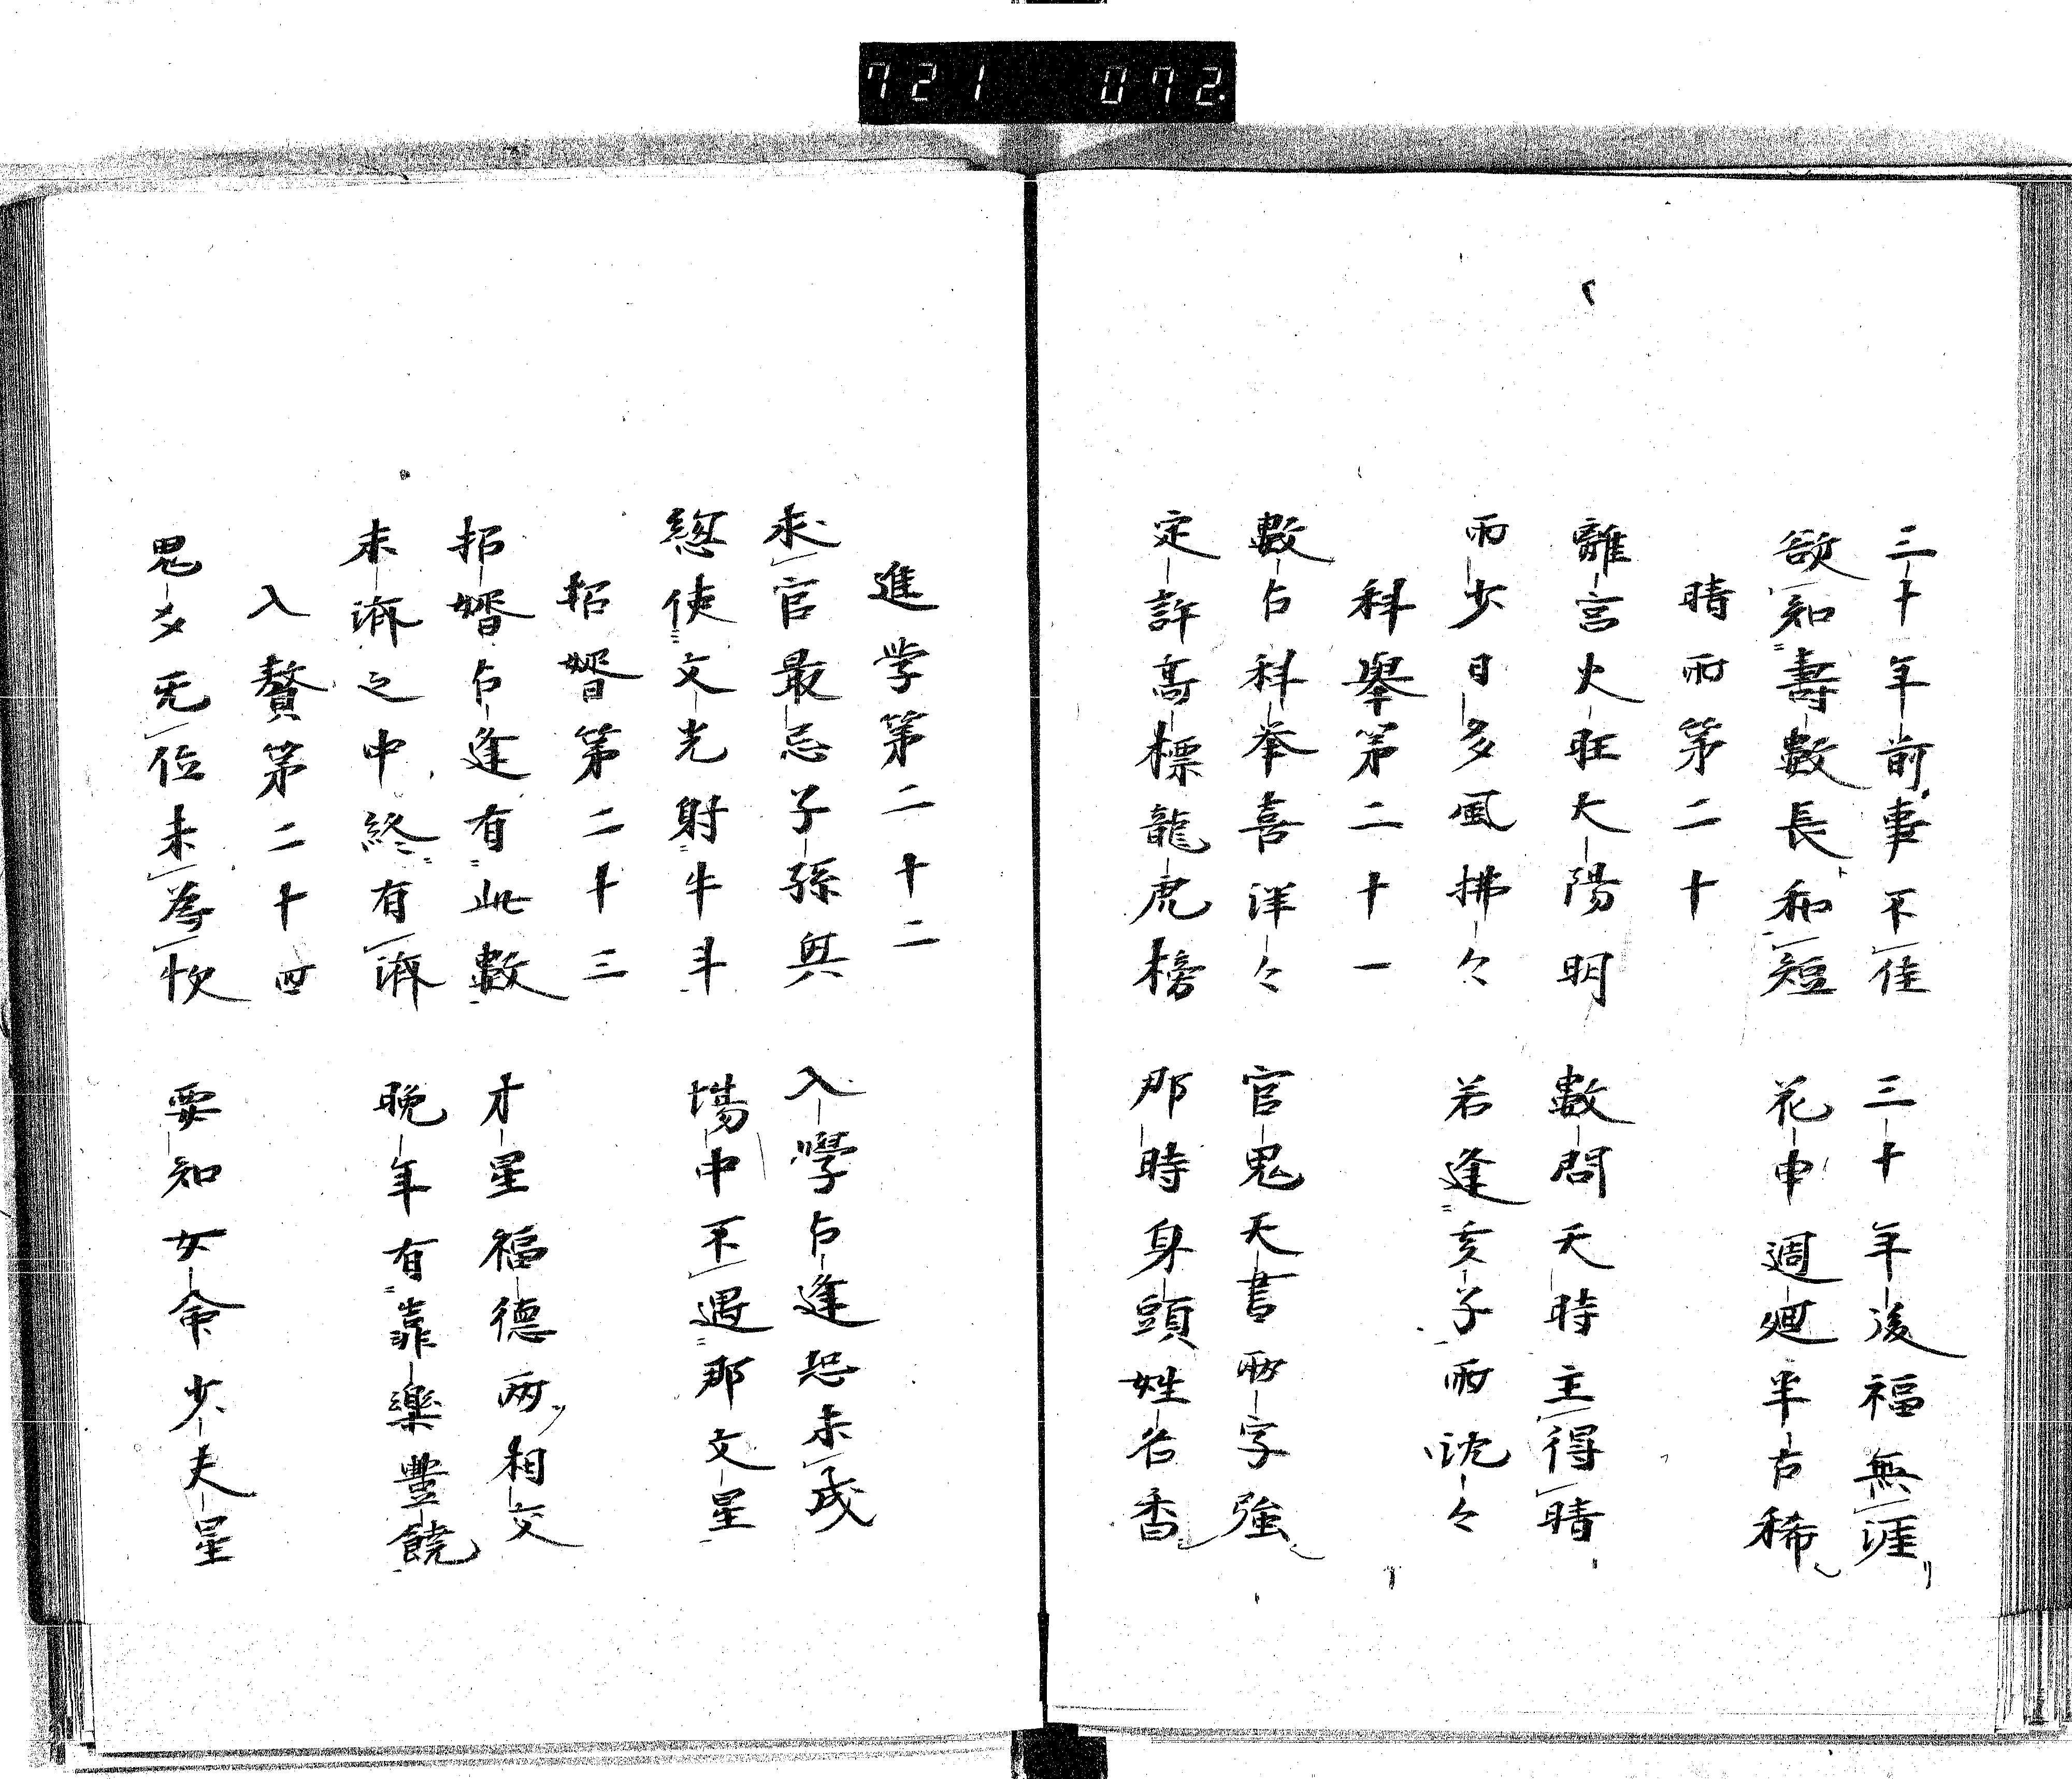 721 072.
三十年前事不佳 三十年後福無涯
欲知壽數長和短 花甲週廻半古稀
晴雨第二十
離宮火旺大陽明 數問天時主得晴
雨少日多風拂々 若逢亥子雨沈々
科舉第二十一
數占科举喜洋々 官鬼天書兩字強
定許高標龍虎榜 那時身頭姓名香
進学第二十二
求官最忌子孫興 入學占逢恐未成
縂使文光射牛斗 場中不遇那文星
招婿第二十三
招婿占逢有此數 才星福德兩相交
未濟之中終有濟 晚年有靠樂豐饒
入贅第二十四
鬼多无位未為欤 要知女命少夫星